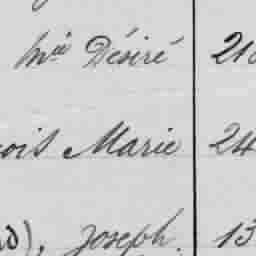 Mie Désiré 21
ois Marie 24
d), Joseph 13